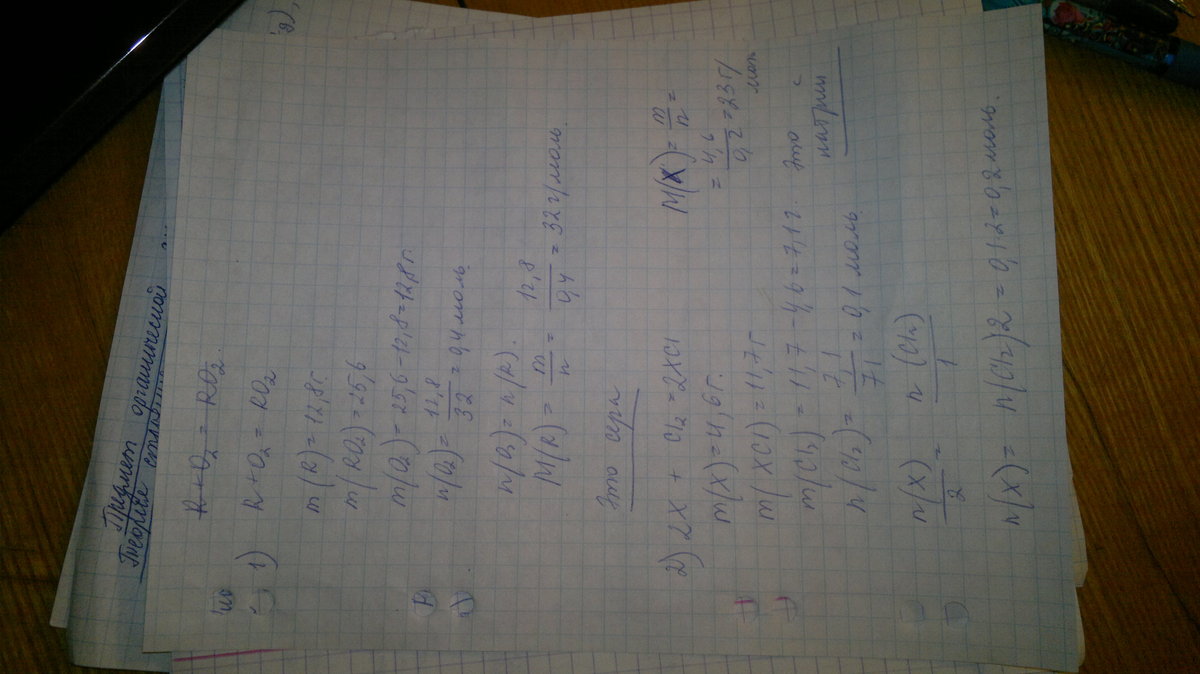 Предмет органической
R + O₂ = RO₂
1) R + O₂ = RO₂
m(R) = 12,8 г.
m(RO₂) = 25,6
m(O₂) = 25,6 - 12,8 = 12,8 г.
n(O₂) = 12,8/32 = 0,4 моль
n(O₂) = n(R).
M(R) = m/n = 12,8/0,4 = 32 г/моль.
Это сера
2) 2X + Cl₂ = 2XCl
m(X) = 4,6 г.
m(XCl) = 11,7 г
m(Cl₂) = 11,7 - 4,6 = 7,1 г.
n(Cl₂) = 7,1/71 = 0,1 моль
n(X)/2 = n(Cl₂)/1
n(X) = n(Cl₂)2 = 0,1·2 = 0,2 моль.
M(X) = m/n =
= 4,6/0,2 = 23 г/
моль
Это
натрий